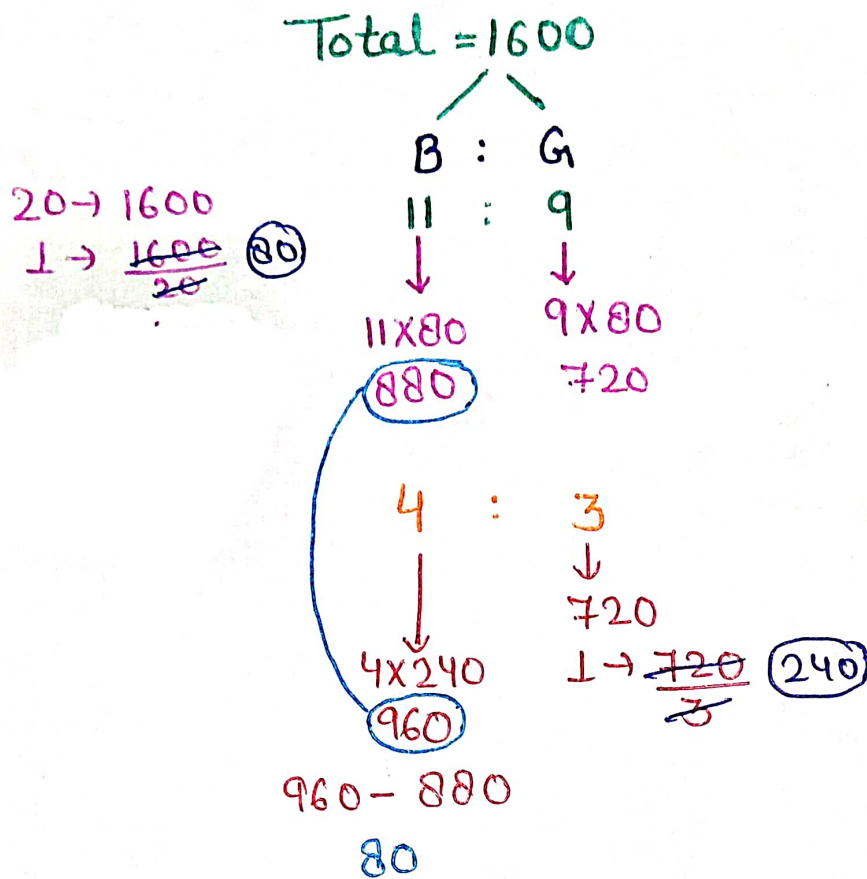 Total = 1600
B : G
20→ 1600
11 : 9
1 → 1600/20 80
11×80
9×80
880
720
4 : 3
720
4×240
1 → 720/3 240
960
960 - 880
80